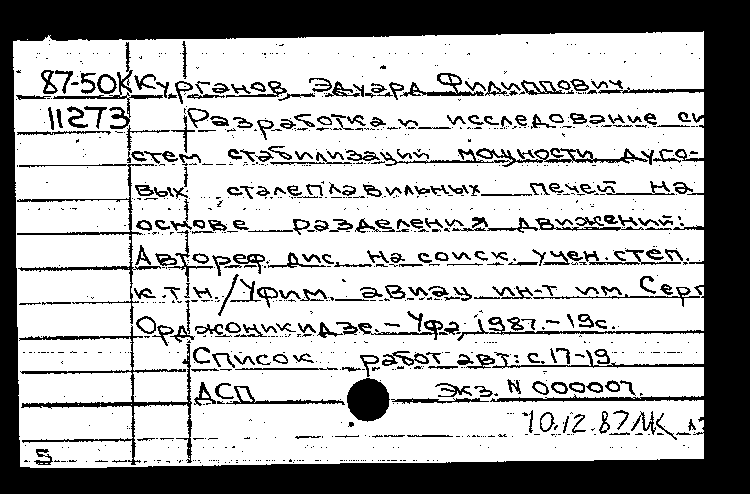 87-50К Курганов, Эдуард Филиппович.
11273 Разработка и исследование си
стем стабилизаций мощности дуго-
вых сталеплавильных печей на
основе разделения движений:
Автореф. дис. на соиск. учен. степ.
к.т.н. / Уфим. авиац. ин-т им. Серг
Орджоникидзе. - Уфа, 1987. - 19с.
Список работ авт: с. 17-19.
ДСП Экз. N 000007.
10.12.87 МК
5